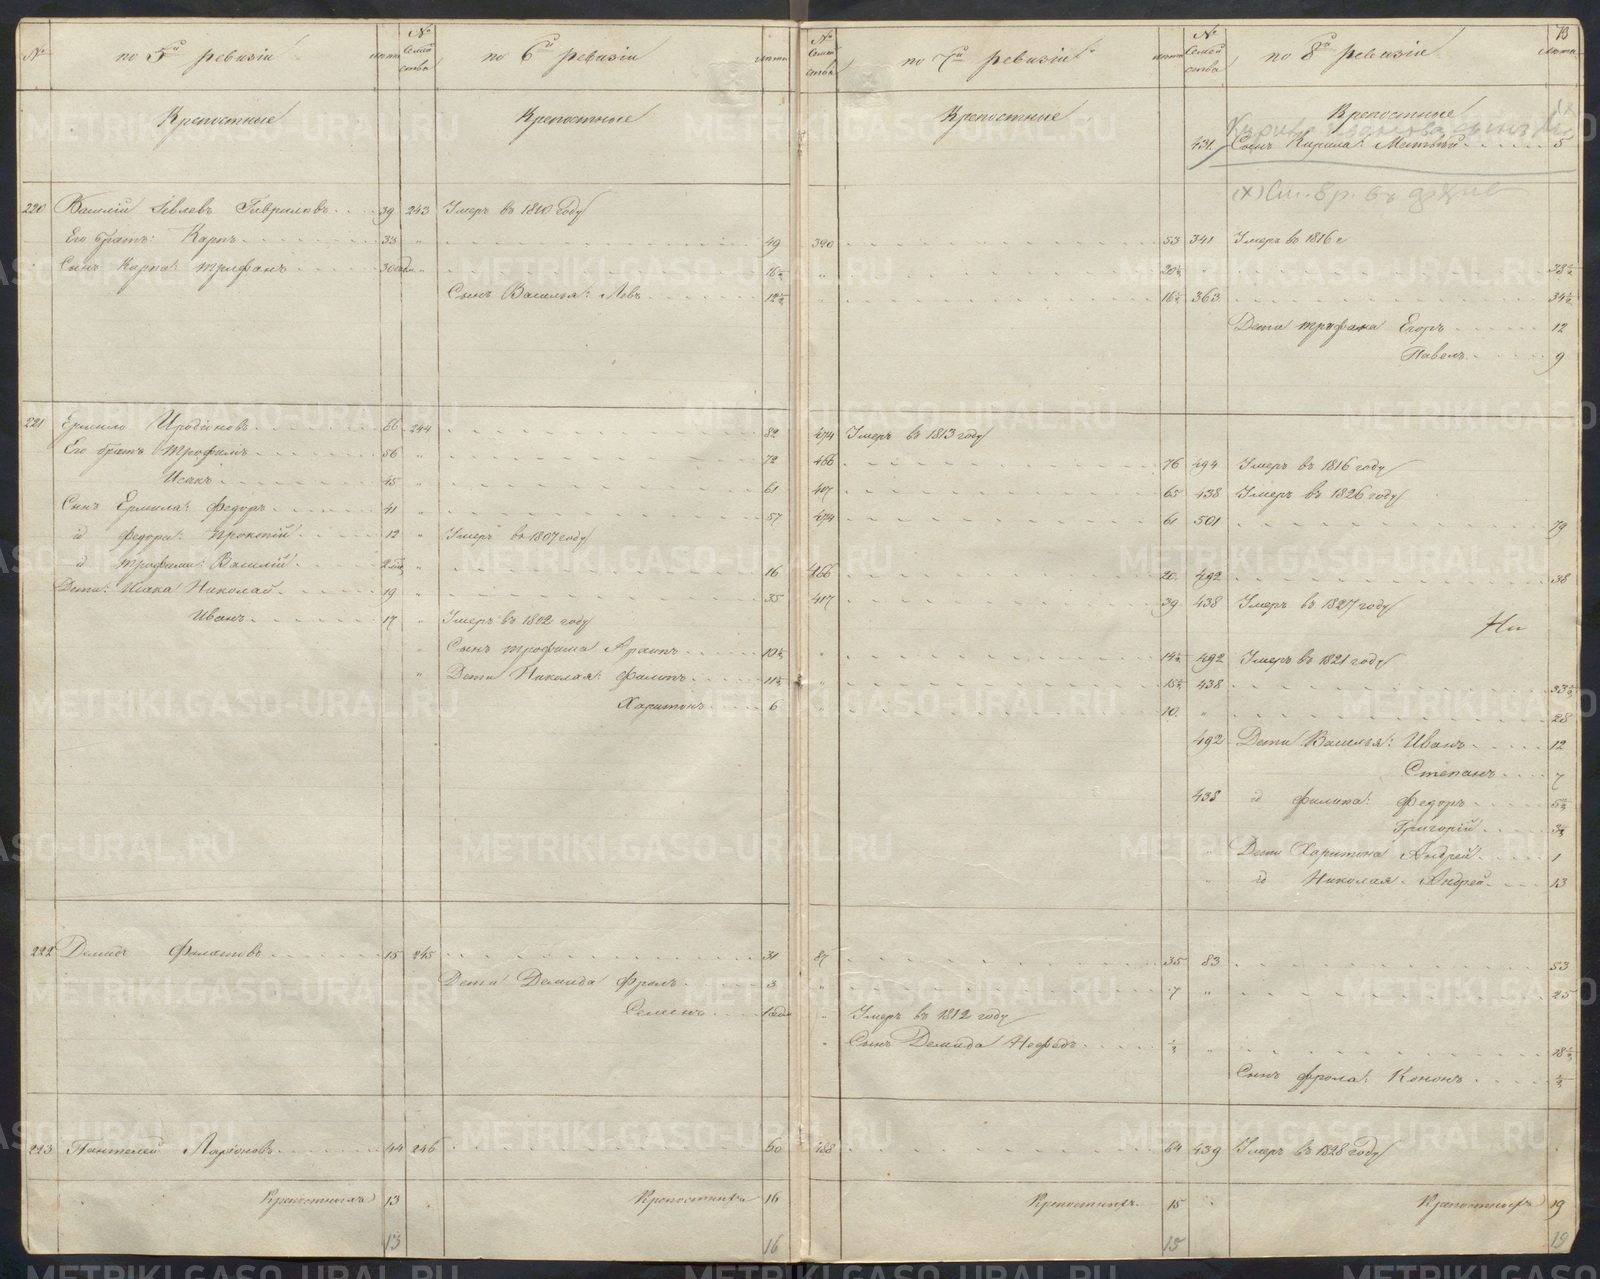 № по 5й ревизіи лета № Семей ства по 6й ревизіи лета № Семей ства по 7й ревизіи лета № Семей ства по 8й ревизіи лета 73
Крепостные Крепостные Крепостные Крепостные
431 Сынъ Кирила: Матвѣй 5
220 Василій Гавриловъ 39 243 Умеръ въ 1810 году
Его братъ: Карпъ 33 „ 49 390 53 341 Умеръ въ 1816 г
Сынъ Карпа: Трифанъ „ 16½ „ 20½ „ 38½
Сынъ Василья: Левъ 12½ „ 16½ 363 34½
Дети Трифана Егоръ 12
Павелъ 9
221 Ермило Иродіоновъ 66 244 82 474 Умеръ въ 1813 году
Его братъ Трофимъ 56 „ 72 466 76 494 Умеръ въ 1816 году
Исакъ 45 „ 61 417 65 438 Умеръ въ 1826 году
Сынъ Ермила: Федоръ 41 „ 57 474 61 501 79
id Федора: Прокопій 12 „ Умеръ въ 1807 году
id Трофима: Василій „ 16 466 20 492 38
Дети: Исака Николай 19 „ 35 417 39 438 Умеръ въ 1827 году
Иванъ 17 „ Умеръ въ 1802 году
Ни
„ Сынъ Трофима 10½ „ 14½ 492 Умеръ въ 1821 году
„ Дети Николая: Филипъ 11½ „ 15½ 438 33½
Харитонъ 6 10 „ 28
492 Дети Василья: Иванъ 12
Степанъ 7
438 id Филипа: Федоръ 5½
Григорій 3½
„ Дети Харитона Андрей 1
„ id Николая Андрей 13
222 Демидъ Филатовъ 15 245 31 87 35 83 53
Дети Демида Фролъ 3 „ 7 „ 25
Семенъ „ Умеръ въ 1812 году
„ Сынъ Демида Нефедъ ½ „ 18½
Сынъ Фрола: Кононъ ½
223 Пантелей Ларіоновъ 44 246 60 488 64 439 Умеръ въ 1828 году
Крепостныхъ 13 Крепостныхъ 16 Крепостныхъ 15 Крепостныхъ 19
13 16 15 19
METRIKI.GASO-URAL.RU